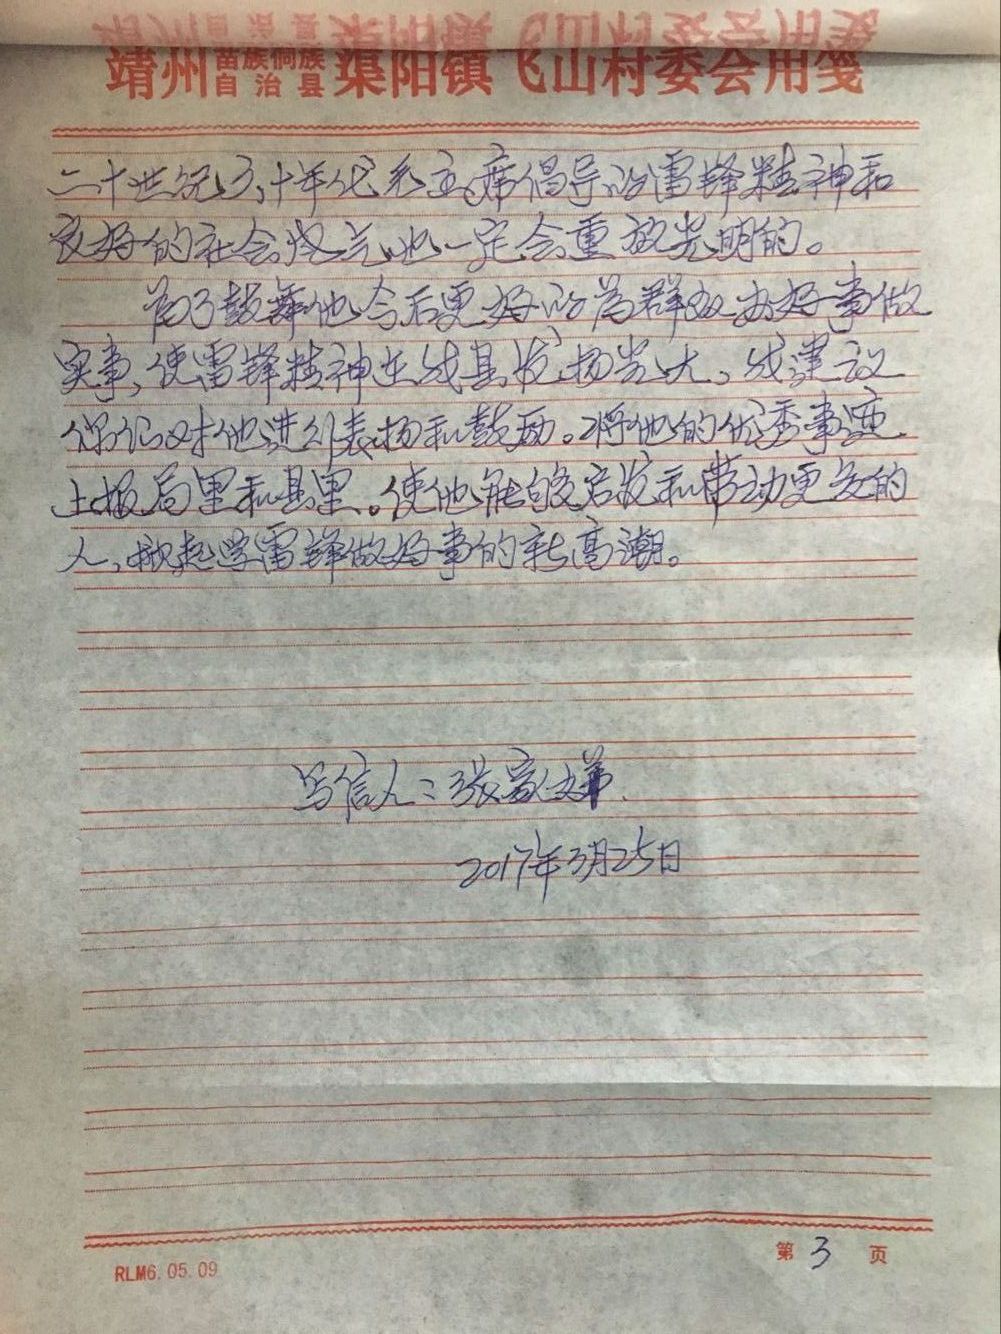 靖州苗族侗族自治县渠阳镇飞山村委会用笺
二十世纪六十年代毛主席倡导的雷锋精神和
良好的社会风气也一定会重放光明的。
为了鼓舞他今后更好的为群众办好事做
实事,使雷锋精神在我县发扬光大,我谨议
你们对他进行表扬和鼓励。将他的优秀事迹
上报局里和县里。使他能够启发和带动更多的
人,掀起学雷锋做好事的新高潮。
写信人:张家
2017年3月25日
第3页
RLM6.05.09